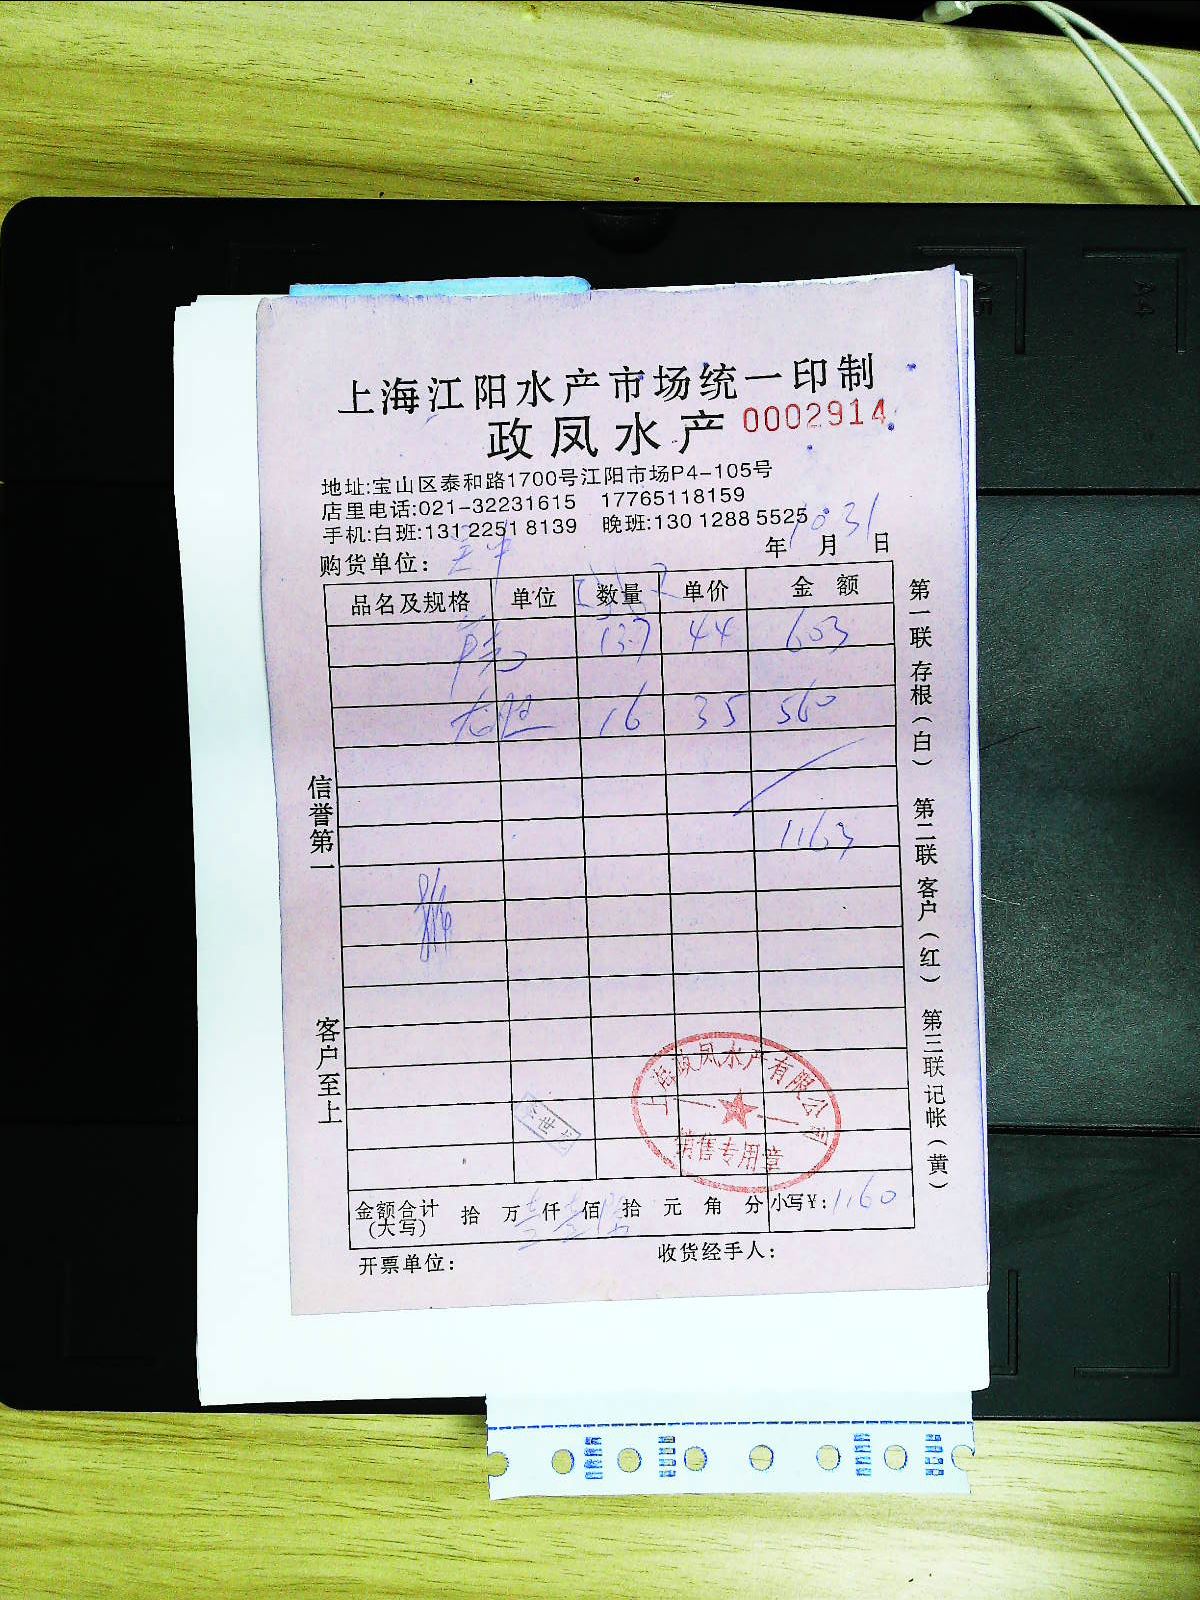 上海江阳水产市场统一印制
政凤水产 0002914
地址:宝山区泰和路1700号江阳市场P4-105号
店里电话:021-32231615 17765118159
手机:白班:131 2251 8139 晚班:130 1288 5525
购货单位: 年 10 月 31 日
品名及规格 单位 数量 单价 金额
13.7 44 603
龙胆 16 35 560
1163
金额合计(大写) 拾 万 壹 仟 壹 佰 拾 元 角 分 小写¥: 1160
开票单位: 收货经手人:
信誉第一
客户至上
第一联 存根(白) 第二联 客户(红) 第三联 记帐(黄)
上海政凤水产有限公司
销售专用章
A4